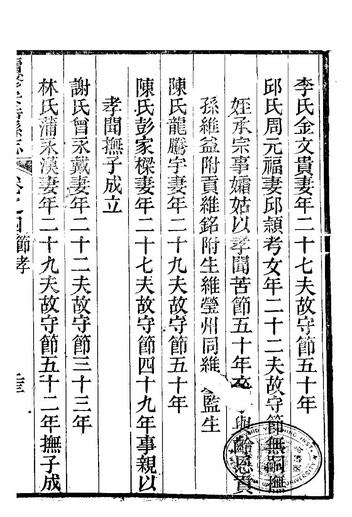 李氏金文貴妻年二十七夫故守節五十年
邱氏周元福妻邱穎考女年二十二夫故守節無嗣撫
姪承宗事孀姑以孝聞苦節五十年
孫維益附貢維銘附生維瑩州同維監生
陳氏龍騰宇妻年二十九夫故守節五十年
陳氏彭家樑妻年二十七夫故守節四十九年事親以
孝聞撫子成立
謝氏曾永戴妻年二十二夫故守節三十三年
林氏蒲永漠妻年二十九夫故守節五十二年撫子成
卷之四 節孝